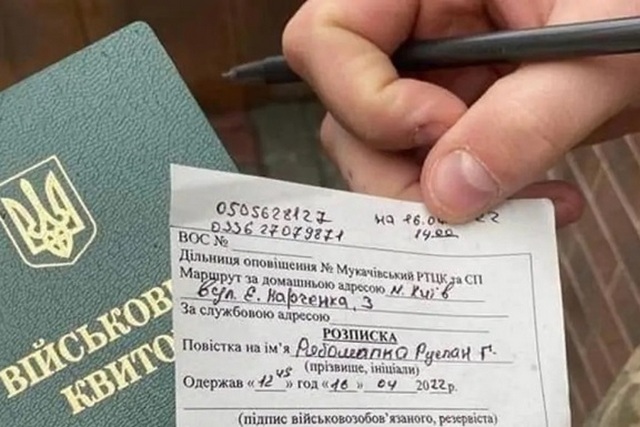 ВІЙСЬКОВ
КВИТО
0505628127
на 16.0 22
0336 27079871
14.00
ВОС №
Дільниця оповіщення № Мукачівський РТЦК та СП
Маршрут за домашньою адресою м. Київ
вул. Е. Марченка, 3
За службовою адресою
РОЗПИСКА
Повістка на ім'я Рябошапка Руслан Г.
(прізвище, ініціали)
Одержав «12 45» год «16» 04 2022р.
(підпис військовозобов'язаного, резервіста)